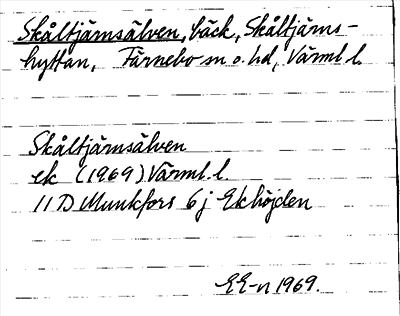 Skåltjärnsälven, bäck, Skåltjärns-
hyttan, Färnebo sn o. hd, Värml. l.
Skåltjärnsälven
ek (1969) Värml. l.
11 D Munkfors 6 j Ekhöjden
EE-n 1969.